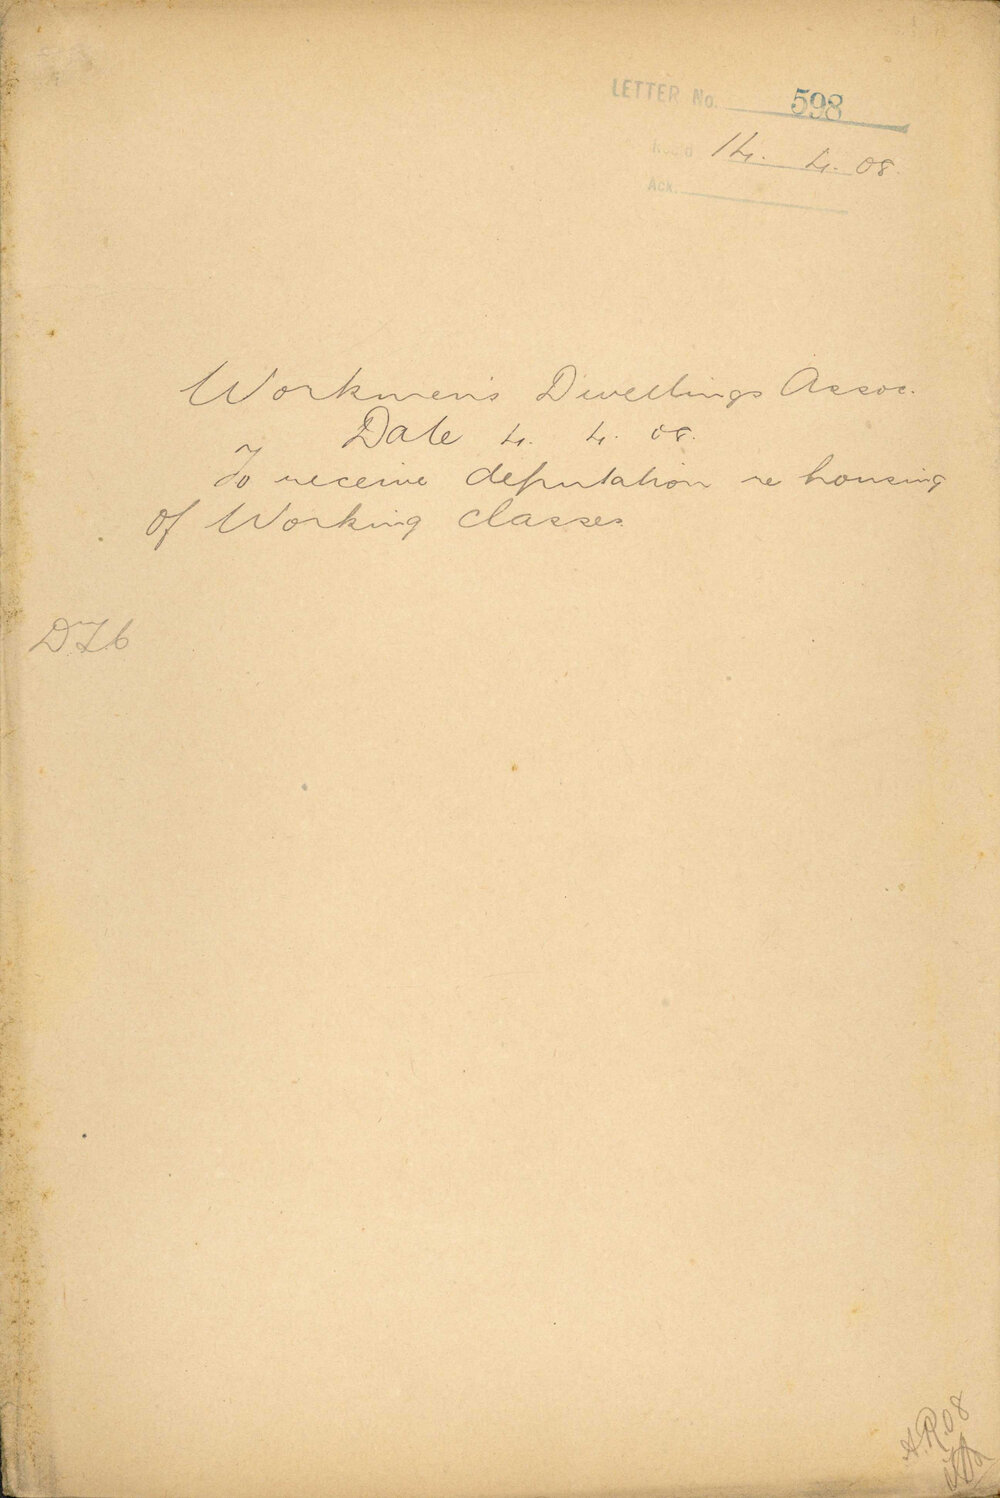 LETTER No. 598
Rec'd 14. 4. 08.
Ack.
Workmen's Dwellings Assoc.
Date 4. 4. 08.
To receive deputation re housing
of Working Classes
A.R. 08